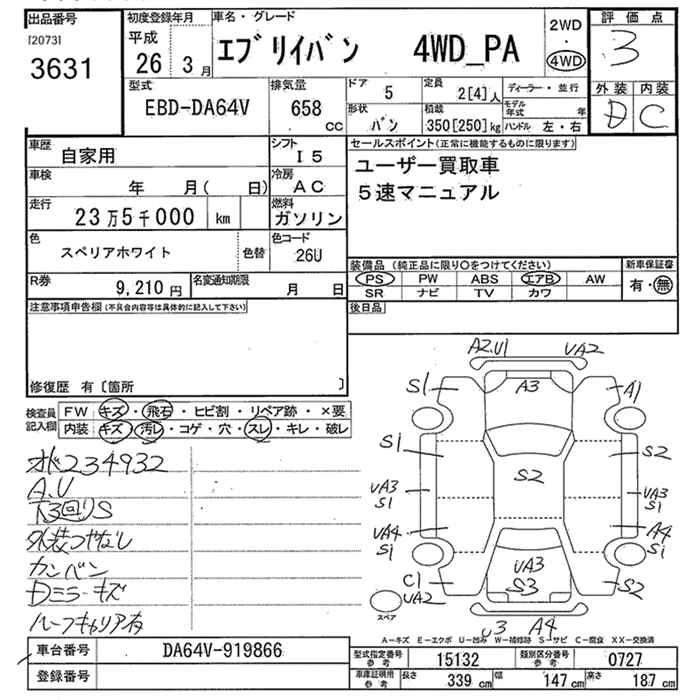 出品番号 初度登録年月 車名・グレード 2WD 評価点
[2073] 平成 エブリイバン 4WD_PA ・ 3
3631 26 3月 4WD
型式 排気量 ドア 5 定員 2[4]人 ディーラー・並行 外装 内装
EBD-DA64V 658 cc 形状 バン 積載 350[250]kg モデル年式 年 D C
ハンドル 左・右
車歴 自家用 シフト I5 セールスポイント(正常に機能するものに限ります)
車検 年 月( 日) 冷房 AC ユーザー買取車
走行 23万5千000 km 燃料 ガソリン 5速マニュアル
色 スペリアホワイト 色替 色コード 26U
装備品(純正品に限り○をつけてください) 新車保証書
R券 9,210円 名変通知期限 月 日 PS PW ABS エアB AW 有・無
SR ナビ TV カワ
注意事項申告欄(不具合内容等は具体的に記入して下さい) 後日品
修復歴 有〔箇所 〕
検査員記入欄 FW キズ・飛石・ヒビ割・リペア跡・×要
内装 キズ・汚レ・コゲ・穴・スレ・キレ・破レ
234932
A.U
下3回りS
外装つやなし
カンバン
Dミラーキズ
ルーフキャリア有
A2.U1 UA2
S1 A3 A1
S1 S2 S2
UA3 S1 UA3 S1
UA4 S1 A4 S1
UA3
C1 UA2 S3 S2
スペア
U3 A4
A-キズ E-エクボ U-凹み W-補修跡 S-サビ C-腐食 XX-交換済
車台番号 DA64V-919866 型式指定番号 参考 15132 類別区分番号 参考 0727
登録番号 車庫証明用 参考 長さ 339cm 幅 147cm 高さ 187cm